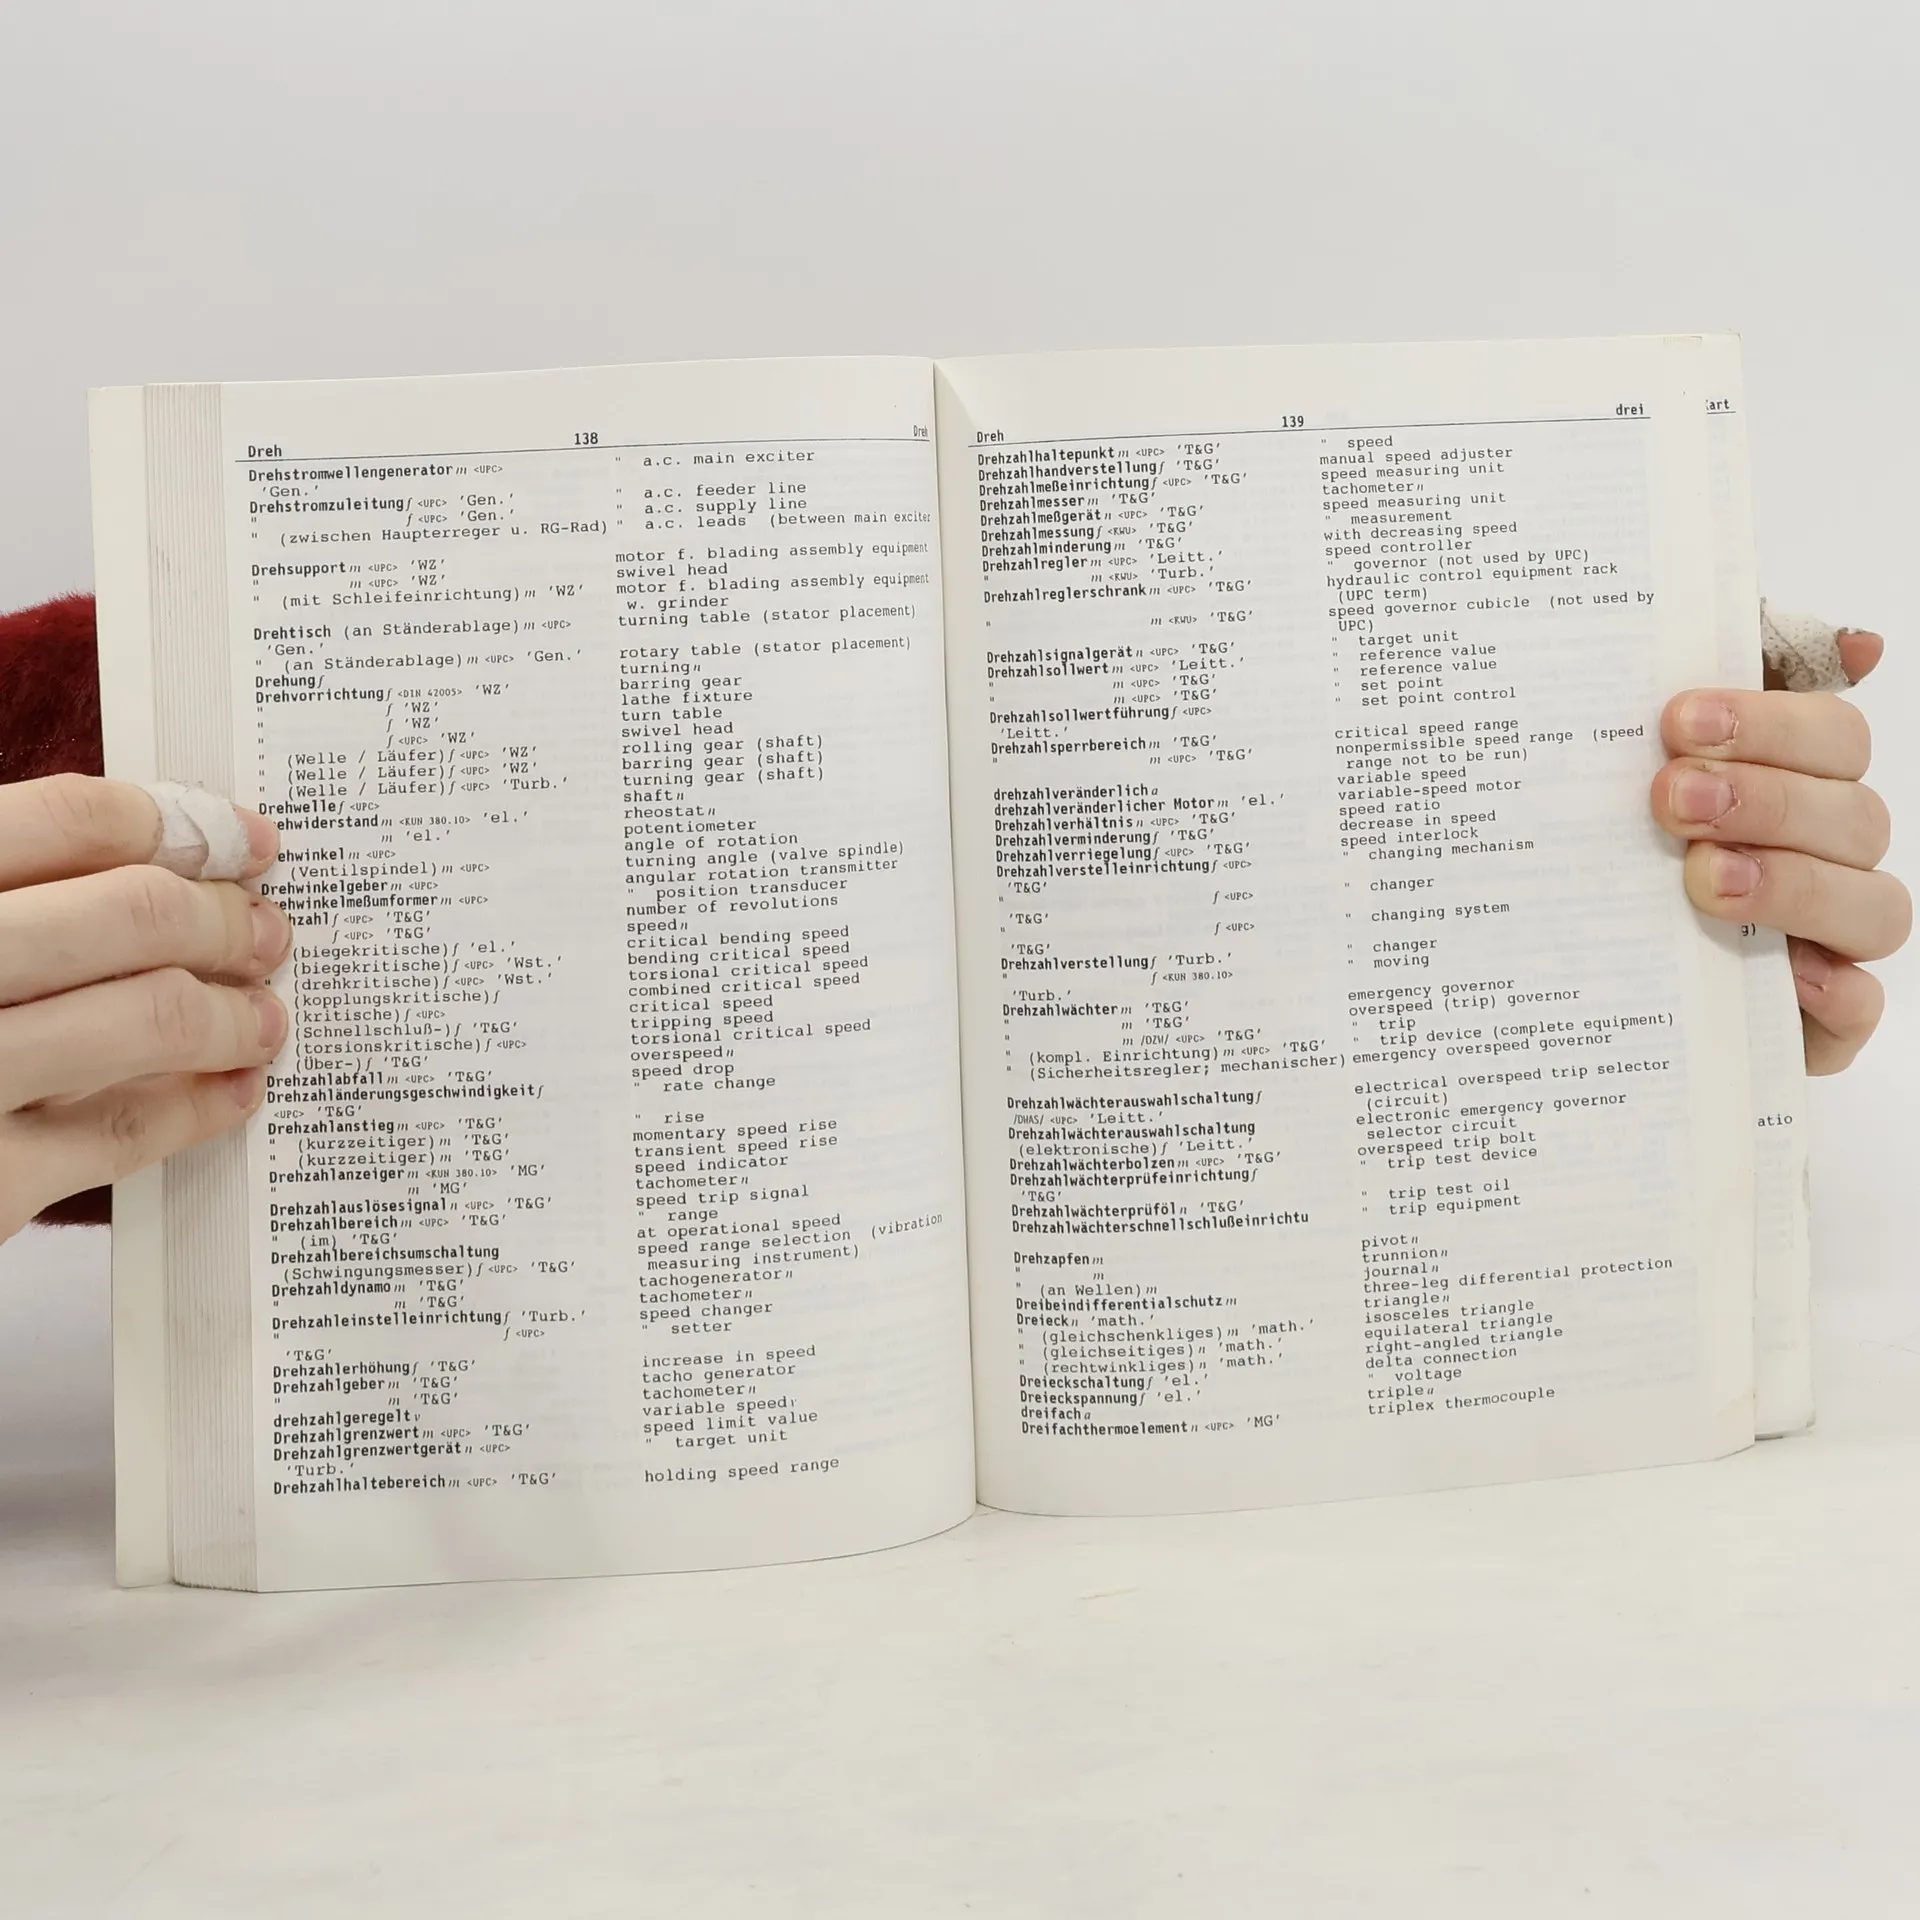 Dreh 138 Dreh
Drehstromwellengenerator m <UPC> " a.c. main exciter
'Gen.'
Drehstromzuleitung f <UPC> 'Gen.' " a.c. feeder line
" f <UPC> 'Gen.' " a.c. supply line
" (zwischen Haupterreger u. RG-Rad) " a.c. leads (between main exciter
Drehsupport m <UPC> 'WZ' motor f. blading assembly equipment
" m <UPC> 'WZ' swivel head
" (mit Schleifeinrichtung) m 'WZ' motor f. blading assembly equipment
w. grinder
Drehtisch (an Ständerablage) m <UPC> turning table (stator placement)
'Gen.'
" (an Ständerablage) m <UPC> 'Gen.' rotary table (stator placement)
Drehung f turning n
Drehvorrichtung f <DIN 42005> 'WZ' barring gear
" f 'WZ' lathe fixture
" f 'WZ' turn table
" f <UPC> 'WZ' swivel head
" (Welle / Läufer) f <UPC> 'WZ' rolling gear (shaft)
" (Welle / Läufer) f <UPC> 'WZ' barring gear (shaft)
" (Welle / Läufer) f <UPC> 'Turb.' turning gear (shaft)
Drehwelle f <UPC> shaft n
ehwiderstand m <KUN 380.10> 'el.' rheostat n
m 'el.' potentiometer
ehwinkel m <UPC> angle of rotation
(Ventilspindel) m <UPC> turning angle (valve spindle)
Drehwinkelgeber m <UPC> angular rotation transmitter
ehwinkelmeßumformer m <UPC> " position transducer
hzahl f <UPC> 'T&G' number of revolutions
f <UPC> 'T&G' speed n
(biegekritische) f 'el.' critical bending speed
(biegekritische) f <UPC> 'Wst.' bending critical speed
" (drehkritische) f <UPC> 'Wst.' torsional critical speed
(kopplungskritische) f combined critical speed
(kritische) f <UPC> critical speed
(Schnellschluß-) f 'T&G' tripping speed
(torsionskritische) f <UPC> torsional critical speed
" (Über-) f 'T&G' overspeed n
Drehzahlabfall m <UPC> 'T&G' speed drop
Drehzahländerungsgeschwindigkeit f " rate change
<UPC> 'T&G'
Drehzahlanstieg m <UPC> 'T&G' " rise
" (kurzzeitiger) m 'T&G' momentary speed rise
" (kurzzeitiger) m 'T&G' transient speed rise
Drehzahlanzeiger m <KUN 380.10> 'MG' speed indicator
" m 'MG' tachometer n
Drehzahlauslösesignal n <UPC> 'T&G' speed trip signal
Drehzahlbereich m <UPC> 'T&G' " range
" (im) 'T&G' at operational speed
Drehzahlbereichsumschaltung speed range selection (vibration
(Schwingungsmesser) f <UPC> 'T&G' measuring instrument)
Drehzahldynamo m 'T&G' tachogenerator n
" m 'T&G' tachometer n
Drehzahleinstelleinrichtung f 'Turb.' speed changer
" f <UPC> " setter
'T&G'
Drehzahlerhöhung f 'T&G' increase in speed
Drehzahlgeber m 'T&G' tacho generator
" m 'T&G' tachometer n
drehzahlgeregelt v variable speed v
Drehzahlgrenzwert m <UPC> 'T&G' speed limit value
Drehzahlgrenzwertgerät n <UPC> " target unit
'Turb.'
Drehzahlhaltebereich m <UPC> 'T&G' holding speed range
Dreh 139 drei
Drehzahlhaltepunkt m <UPC> 'T&G' " speed
Drehzahlhandverstellung f 'T&G' manual speed adjuster
Drehzahlmeßeinrichtung f <UPC> 'T&G' speed measuring unit
Drehzahlmesser m 'T&G' tachometer n
Drehzahlmeßgerät n <UPC> 'T&G' speed measuring unit
Drehzahlmessung f <KWU> 'T&G' " measurement
Drehzahlminderung m 'T&G' with decreasing speed
Drehzahlregler m <UPC> 'Leitt.' speed controller
" m <KWU> 'Turb.' " governor (not used by UPC)
Drehzahlreglerschrank m <UPC> 'T&G' hydraulic control equipment rack
(UPC term)
" m <KWU> 'T&G' speed governor cubicle (not used by
UPC)
Drehzahlsignalgerät n <UPC> 'T&G' " target unit
Drehzahlsollwert m <UPC> 'Leitt.' " reference value
" m <UPC> 'T&G' " reference value
" m <UPC> 'T&G' " set point
Drehzahlsollwertführung f <UPC> " set point control
'Leitt.'
Drehzahlsperrbereich m 'T&G' critical speed range
" m <UPC> 'T&G' nonpermissible speed range (speed
range not to be run)
drehzahlveränderlich a variable speed
drehzahlveränderlicher Motor m 'el.' variable-speed motor
Drehzahlverhältnis n <UPC> 'T&G' speed ratio
Drehzahlverminderung f 'T&G' decrease in speed
Drehzahlverriegelung f <UPC> 'T&G' speed interlock
Drehzahlverstelleinrichtung f <UPC> " changing mechanism
'T&G'
" f <UPC> " changer
'T&G'
" f <UPC> " changing system
'T&G'
Drehzahlverstellung f 'Turb.' " changer
" f <KUN 380.10> " moving
'Turb.'
Drehzahlwächter m 'T&G' emergency governor
" m 'T&G' overspeed (trip) governor
" m /DZW/ <UPC> 'T&G' " trip
" (kompl. Einrichtung) m <UPC> 'T&G' " trip device (complete equipment)
" (Sicherheitsregler; mechanischer) emergency overspeed governor
Drehzahlwächterauswahlschaltung f electrical overspeed trip selector
/DHAS/ <UPC> 'Leitt.' (circuit)
Drehzahlwächterauswahlschaltung electronic emergency governor
(elektronische) f 'Leitt.' selector circuit
Drehzahlwächterbolzen m <UPC> 'T&G' overspeed trip bolt
Drehzahlwächterprüfeinrichtung f " trip test device
'T&G'
Drehzahlwächterprüföl n 'T&G' " trip test oil
Drehzahlwächterschnellschlußeinrichtu " trip equipment
Drehzapfen m pivot n
" m trunnion n
" (an Wellen) m journal n
Dreibeindifferentialschutz m three-leg differential protection
Dreieck n 'math.' triangle n
" (gleichschenkliges) m 'math.' isosceles triangle
" (gleichseitiges) n 'math.' equilateral triangle
" (rechtwinkliges) n 'math.' right-angled triangle
Dreieckschaltung f 'el.' delta connection
Dreieckspannung f 'el.' " voltage
dreifach a triple a
Dreifachthermoelement n <UPC> 'MG' triplex thermocouple
art
g)
atio